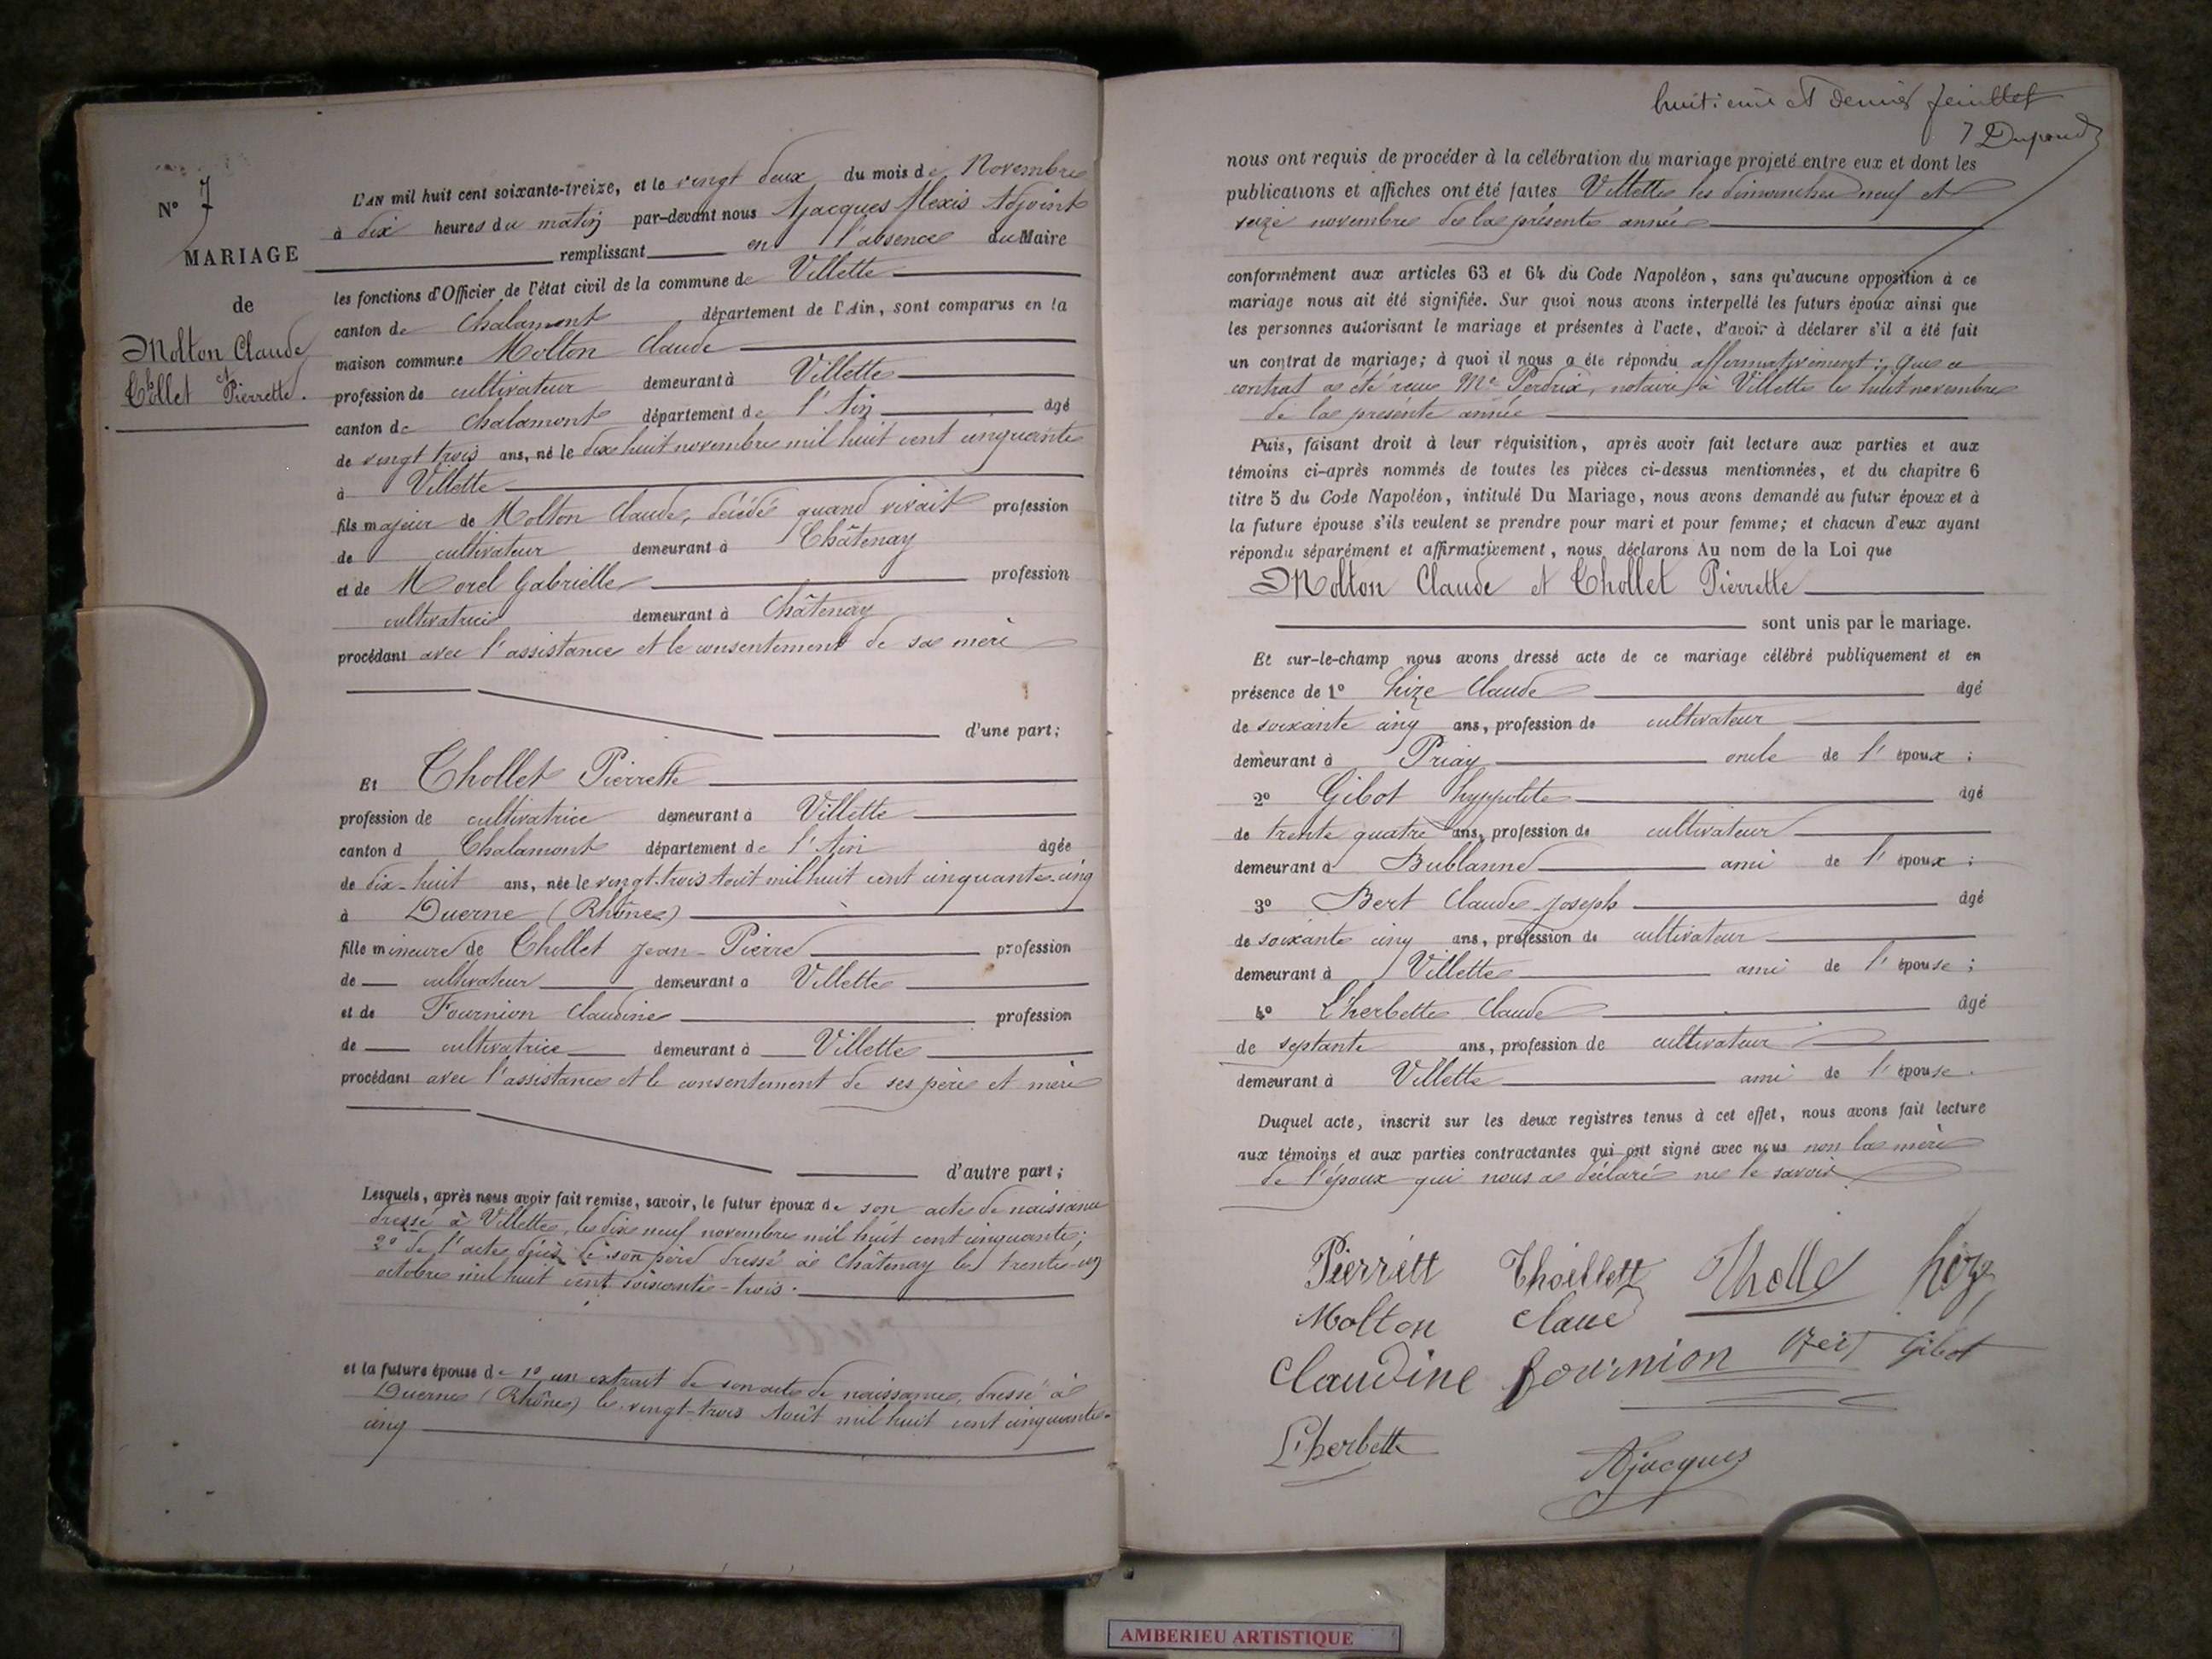 N° 7
MARIAGE
de
Molton Claude
et
Chollet Pierrette.
L'AN mil huit cent soixante-treize, et le vingt deux du mois de Novembre
à dix heures du matin par-devant nous Ajacques Alexis Adjoint
remplissant en l'absence du Maire
les fonctions d'Officier de l'état civil de la commune de Villette
canton de Chalamont département de l'Ain, sont comparus en la
maison commune Molton Claude
profession de cultivateur demeurant à Villette
canton de Chalamont département de l'Ain âgé
de vingt trois ans, né le dix huit novembre mil huit cent cinquante
à Villette
fils majeur de Molton Claude, décédé quand vivait profession
de cultivateur demeurant à Châtenay
et de Morel Gabrielle profession
cultivatrice demeurant à Châtenay
procédant avec l'assistance et le consentement de sa mère
d'une part;
Et Chollet Pierrette
profession de cultivatrice demeurant à Villette
canton d Chalamont département de l'Ain âgée
de dix-huit ans, née le vingt-trois Août mil huit cent cinquante-cinq
à Duerne (Rhône)
fille mineure de Chollet Jean-Pierre profession
de cultivateur demeurant à Villette
et de Fournion Claudine profession
de cultivatrice demeurant à Villette
procédant avec l'assistance et le consentement de ses père et mère
d'autre part;
Lesquels, après nous avoir fait remise, savoir, le futur époux de son acte de naissance
dressé à Villette, le dix neuf novembre mil huit cent cinquante;
2° de l'acte décès de son père dressé à Châtenay le trente-un
octobre mil huit cent soixante-trois.
et la future épouse de 1° un extrait de son acte de naissance, dressé à
Duerne (Rhône) le vingt-trois Août mil huit cent cinquante-
cinq
huitième et dernier feuillet
7 Dupond
nous ont requis de procéder à la célébration du mariage projeté entre eux et dont les
publications et affiches ont été faites Villette les dimanches neuf et
seize novembre de la présente année
conformément aux articles 63 et 64 du Code Napoléon, sans qu'aucune opposition à ce
mariage nous ait été signifiée. Sur quoi nous avons interpellé les futurs époux ainsi que
les personnes autorisant le mariage et présentes à l'acte, d'avoir à déclarer s'il a été fait
un contrat de mariage; à quoi il nous a été répondu affirmativement: Que ce
contrat a été reçu Me Perdrix, notaire à Villette le huit novembre
de la présente année
Puis, faisant droit à leur réquisition, après avoir fait lecture aux parties et aux
témoins ci-après nommés de toutes les pièces ci-dessus mentionnées, et du chapitre 6
titre 5 du Code Napoléon, intitulé Du Mariage, nous avons demandé au futur époux et à
la future épouse s'ils veulent se prendre pour mari et pour femme; et chacun d'eux ayant
répondu séparément et affirmativement, nous déclarons Au nom de la Loi que
Molton Claude et Chollet Pierrette
sont unis par le mariage.
Et sur-le-champ nous avons dressé acte de ce mariage célébré publiquement et en
présence de 1° hize Claude âgé
de soixante cinq ans, profession de cultivateur
demeurant à Priay oncle de l'époux;
2° Gibot hyppolite âgé
de trente quatre ans, profession de cultivateur
demeurant à Bublanne ami de l'époux;
3° Bert Claude Joseph âgé
de soixante cinq ans, profession de cultivateur
demeurant à Villette ami de l'épouse;
4° L'herbette Claude âgé
de septante ans, profession de cultivateur
demeurant à Villette ami de l'épouse.
Duquel acte, inscrit sur les deux registres tenus à cet effet, nous avons fait lecture
aux témoins et aux parties contractantes qui ont signé avec nous non la mère
de l'époux qui nous a déclaré ne le savoir
Pierrett Thoillett Tholle hize
Molton Claue
Claudine fournion Bert Gibot
L'herbette Ajacques
AMBERIEU ARTISTIQUE